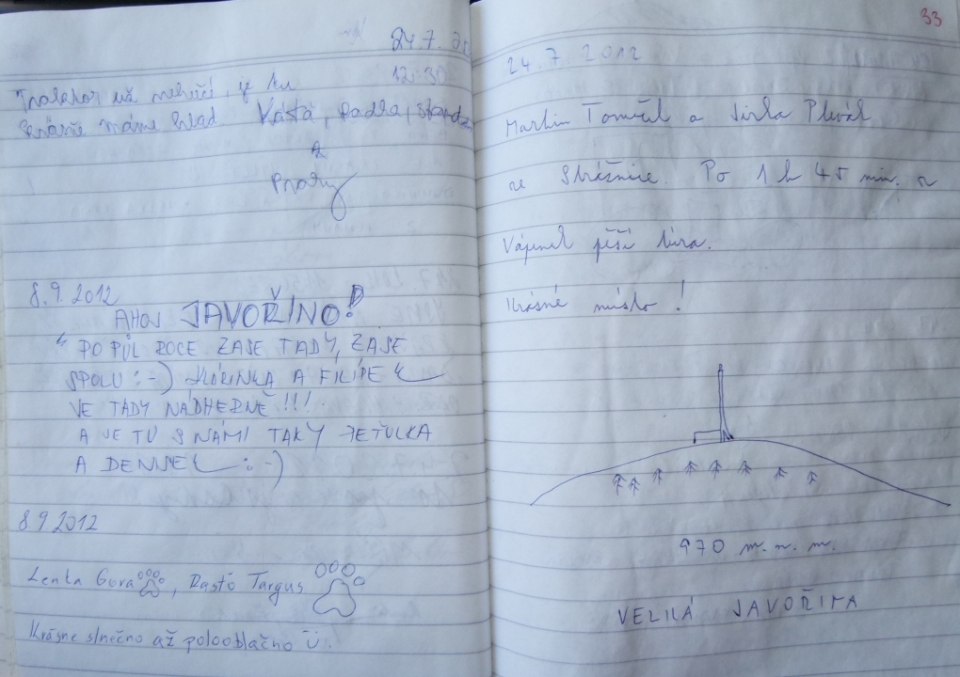 24.7.
12:30
už
máme hlad Kristá, Radka,
a
Prdry
8.9.2012
AHOJ JAVOŘINO!
" PO PŮL ROCE ZASE TADY, ZASE
SPOLU :-) KLÓRINKA A FILÍPEK
VE TADY NÁDHERNĚ !!!
A JE TU S NÁMI TAKY JEŤULKA
A DENISEK :-)
8.9.2012
Lenka Gora, Rasťo Targus
Krásne slnečno až polooblačno Ü.
33
24.7.2012
Martin Tomeček a Jirka Plevák
ze Strážnice. Po 1 h 45 min. z
Vápenek pěší túra.
Krásné místo !
970 m. n. m.
VELKÁ JAVOŘINA